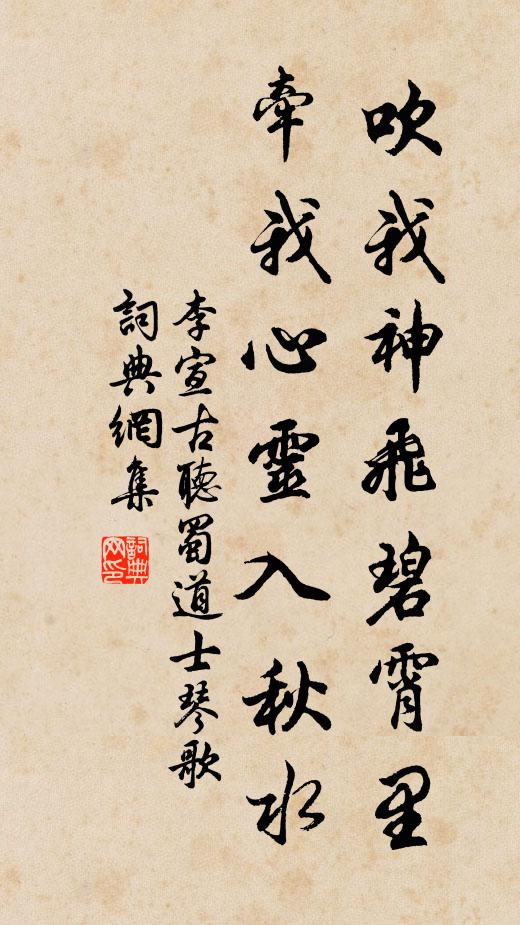 吹我神飛碧霄里
牽我心靈入秋水
李宣古聽蜀道士琴歌
詞典網集
詞典網印